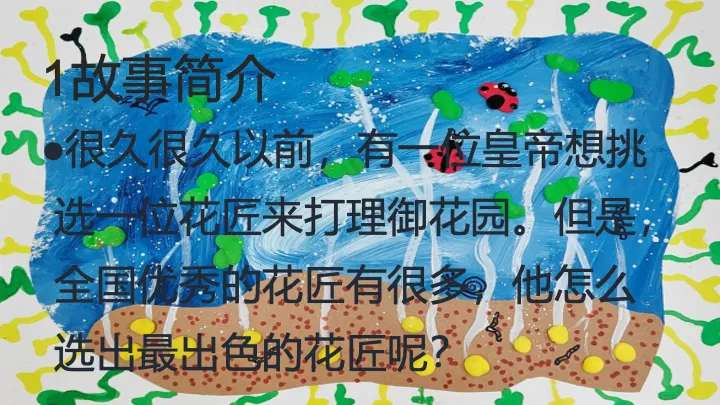 1故事简介
•很久很久以前，有一位皇帝想挑
选一位花匠来打理御花园。但是，
全国优秀的花匠有很多，他怎么
选出最出色的花匠呢?